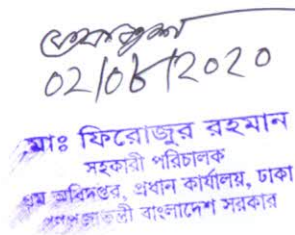 02/06/2020
মোঃ ফিরোজুর রহমান
সহকারী পরিচালক
শ্রম অধিদপ্তর, প্রধান কার্যালয়, ঢাকা
গণপ্রজাতন্ত্রী বাংলাদেশ সরকার